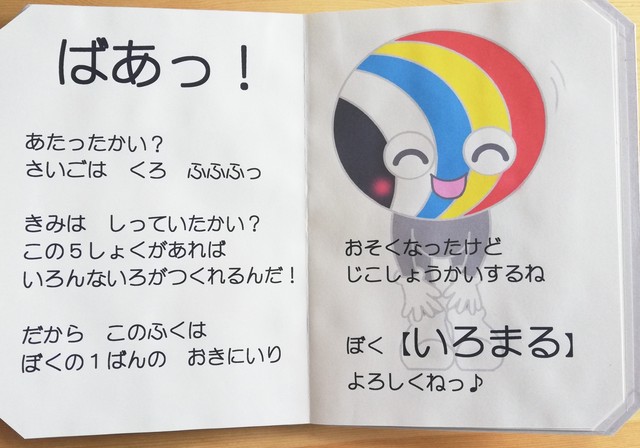 ばあっ！
あたったかい？
さいごは　くろ　ふふふっ
きみは　しっていたかい？
この５しょくがあれば
いろんないろがつくれるんだ！
だから　このふくは
ぼくの１ばんの　おきにいり
おそくなったけど
じこしょうかいするね
ぼく【いろまる】
よろしくねっ♪